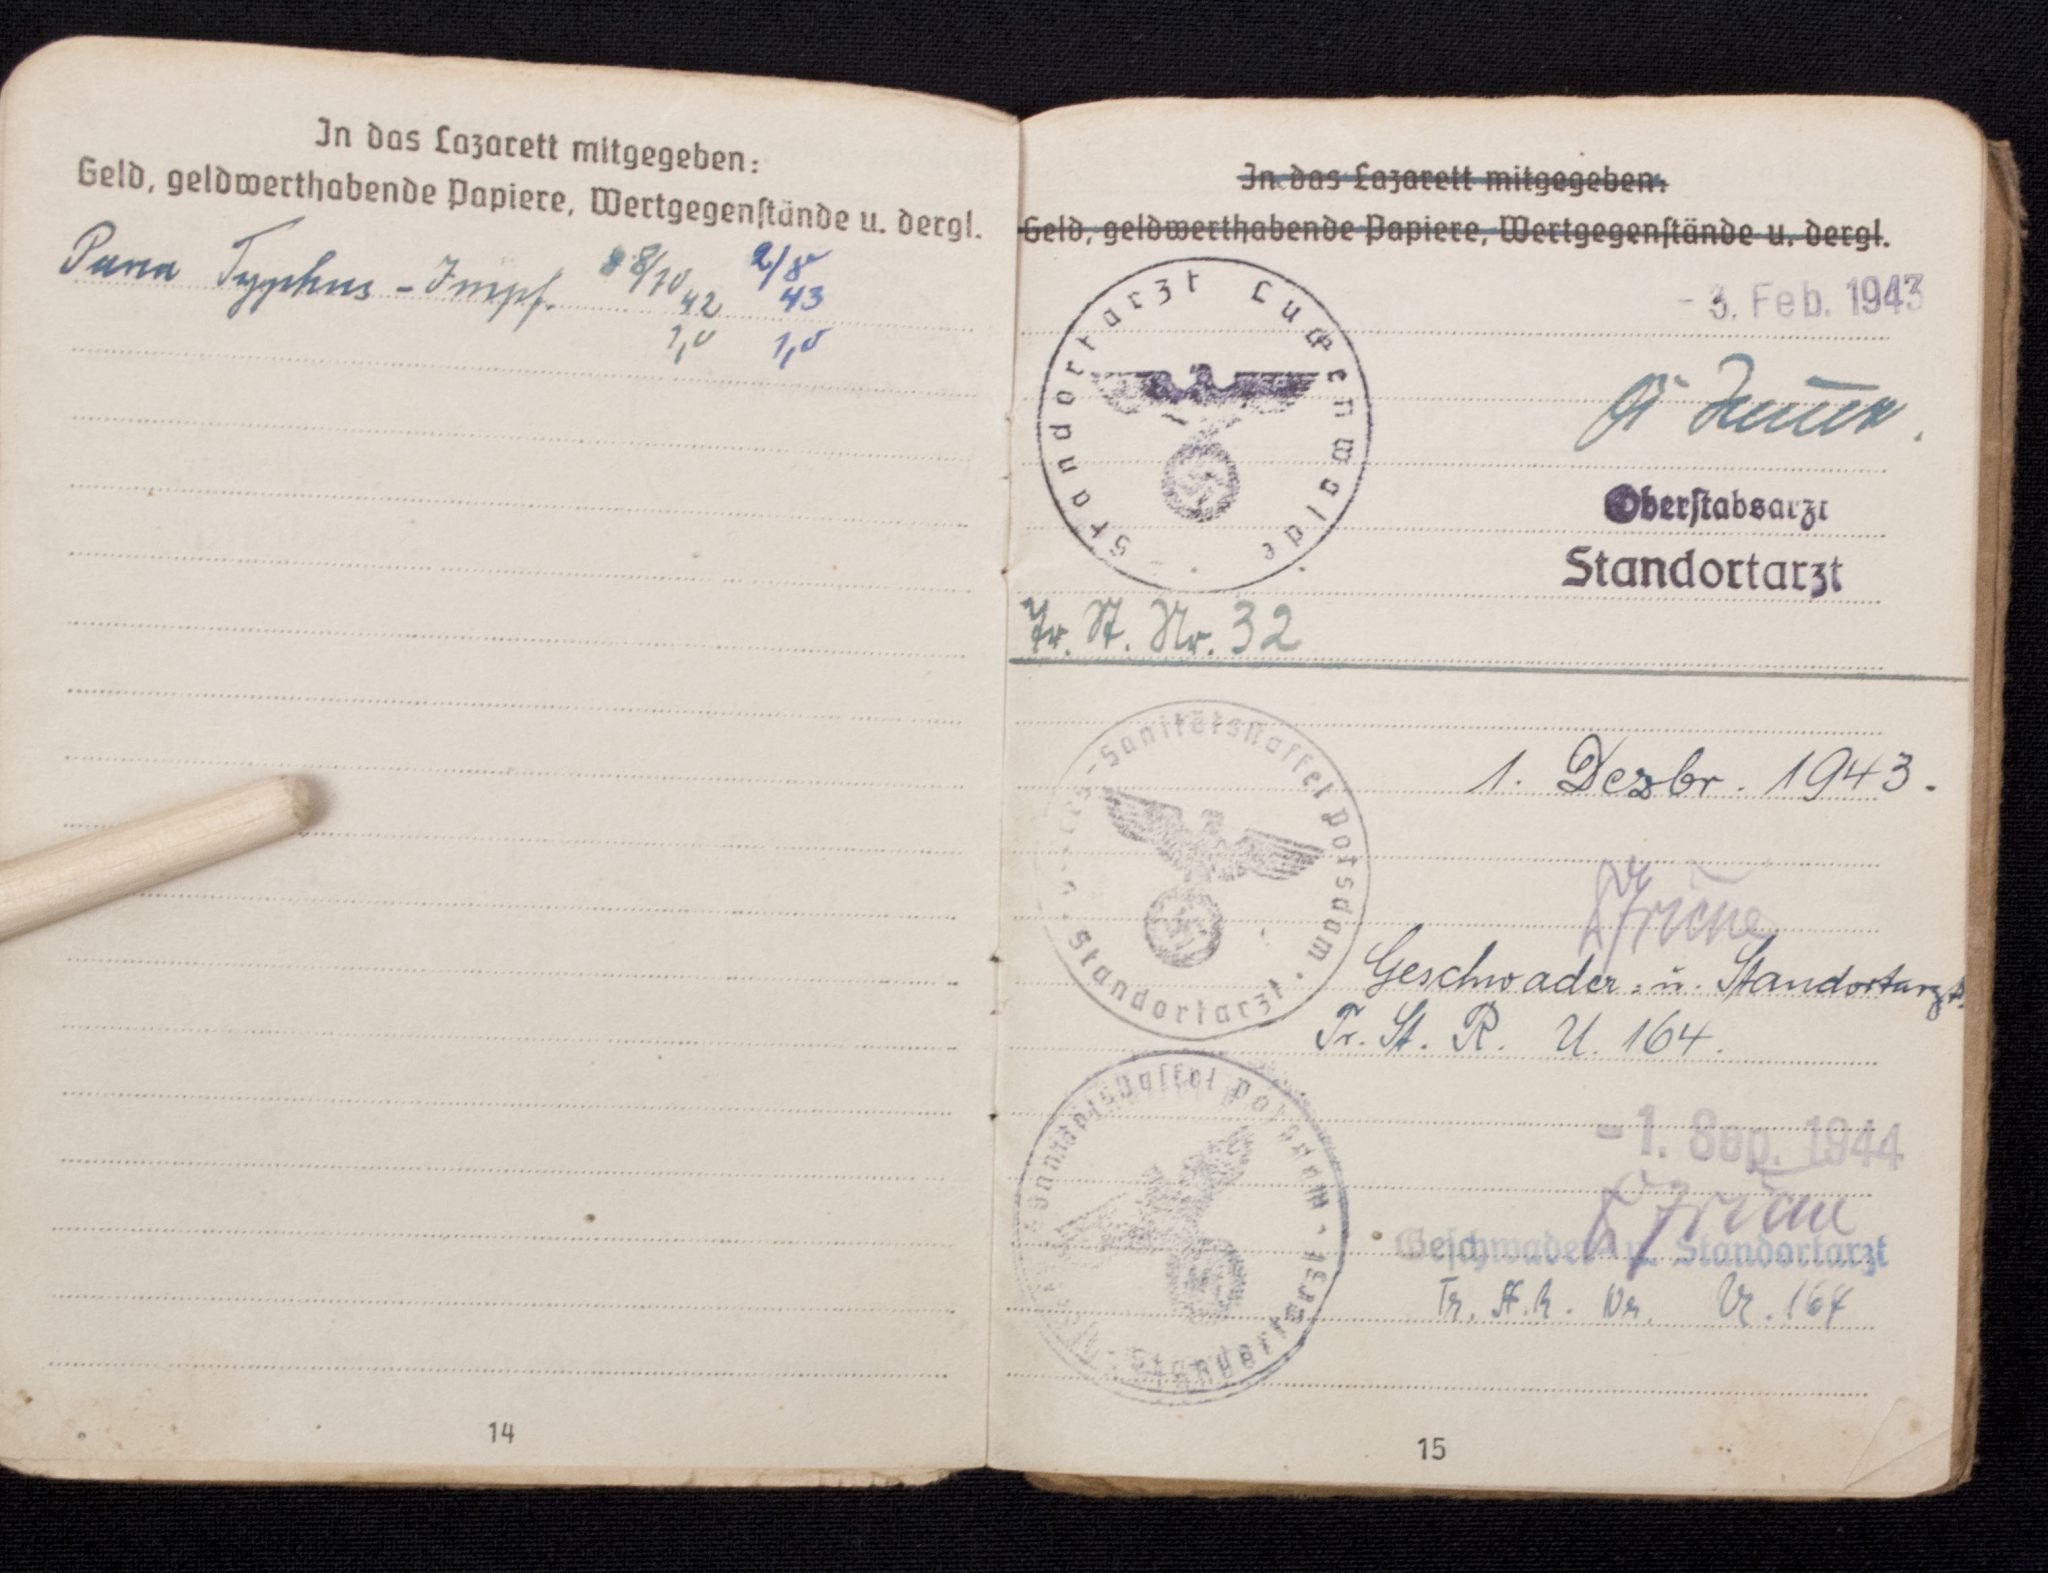 In das Lazarett mitgegeben:
Geld, geldwerthabende Papiere, Wertgegenstände u. dergl.
Para Typhus - Impf. 8/10 2/8
42 43
1,0 1,0
14
In das Lazarett mitgegeben:
Geld, geldwerthabende Papiere, Wertgegenstände u. dergl.
- 3. Feb. 1943
Standortarzt Luckenwalde
Oberstabsarzt
Standortarzt
Tr. St. Nr. 32
Sanitätsstaffel Potsdam · Standortarzt
1. Dezbr. 1943.
Geschwader- u. Standortarzt.
Tr. St. R. U. 164.
Sanitätsstaffel Potsdam
-1. Sep. 1944
Geschwader u. Standortarzt
Tr. St. R. Nr. U. 164
15